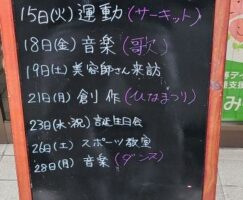 15日(火)運動(サーキット)
18日(金)音楽(歌)
19日(土)美容師さん来訪
21日(月)創作(ひなまつり)
23日(水・祝)誕生日会
26日(土)スポーツ教室
28日(月)音楽(ダンス)